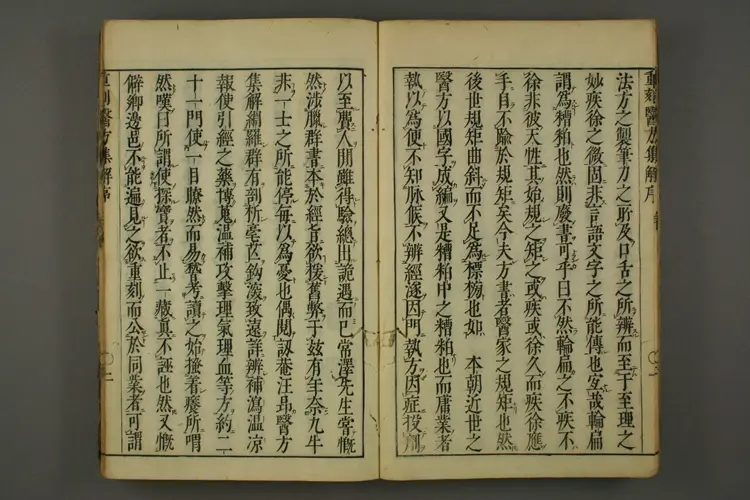 重刻醫方集解序
法方之製筆刀之所及口舌之所辨而至于至理之
妙疾徐之微固非言語文字之所能傳也宜哉輪扁
謂為糟粕也然則廢書可乎曰不然輪扁之不疾不
徐非彼天性其始規之矩之或疾或徐久而疾徐應
手自不踰於規矩矣今夫方書者醫家之規矩也然
後世規矩曲斜而不足為標物也如 本朝近世之
醫方以國字成編又是糟粕中之糟粕也而庸業者
執以為便不知脉候不辨經逐因門執方因症投劑
以至聾人間雖得驗總出詭遇而已常澤先生嘗慨
然涉臘群書本於經旨欲撥舊弊于玆有年奈九牛
非一士之所能停每以為憂也偶閱訒菴汪昂醫方
集解網羅群有剖析毫芒鈎深致遠詳辨補瀉温凉
報使引經之藥博蒐温補攻擊理氣理血等方約二
十一門使一目瞭然而易嵇考讀之如搔着癢所喟
然嘆曰所謂使探寶者不止一藏真不誣也然又慨
僻鄉邊邑不能遍見之欲重刻而公於同業者可謂
重刻醫方集解序